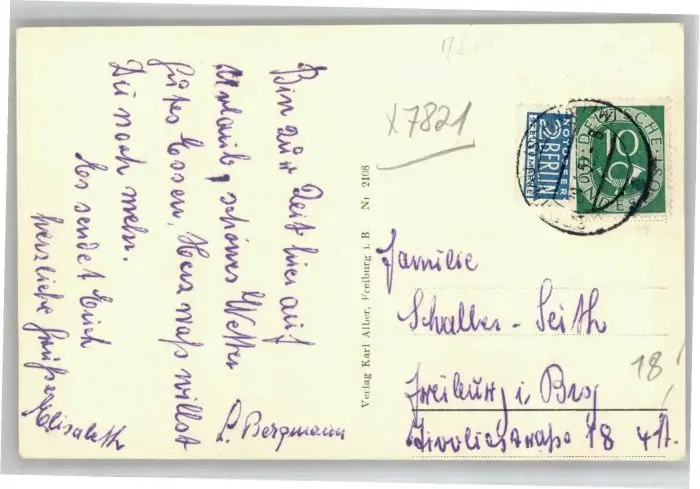 Bin zur Zeit hier auf
Urlaub, schönes Wetter
gutes Essen, Herz was willst
Du noch mehr.
Es sendet Euch
herzliche Grüße
Elisabeth
L. Bergmann
Verlag Karl Alber, Freiburg i. B Nr 2108
x7821
NOTOPFER
2 BERLIN
STEUERMARKE
DEUTSCHE POST
10
Familie
Schaller - Seith
Freiburg i. Brsg
Tivolistraße 18 4 St.
18